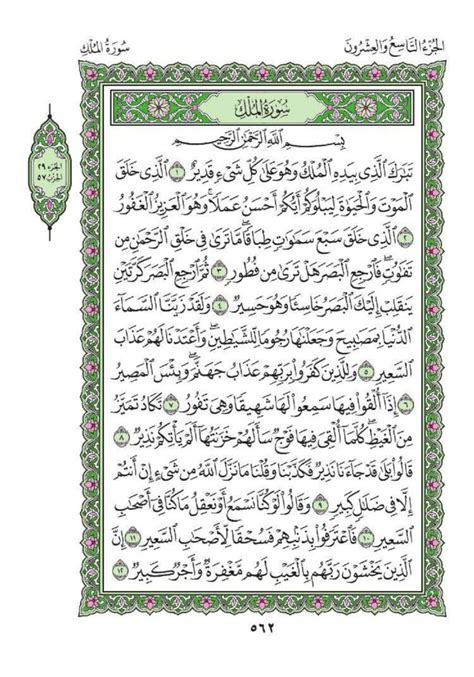 الجُزْءُ التَّاسِعُ وَالعِشْرُونَ
سُورَةُ المُلْكِ
الجزء ٢٩
الحزب ٥٧
سُورَةُ المُلْكِ
بِسْمِ ٱللَّهِ ٱلرَّحْمَٰنِ ٱلرَّحِيمِ
تَبَٰرَكَ ٱلَّذِى بِيَدِهِ ٱلْمُلْكُ وَهُوَ عَلَىٰ كُلِّ شَىْءٍ قَدِيرٌ ١ ٱلَّذِى خَلَقَ
ٱلْمَوْتَ وَٱلْحَيَوٰةَ لِيَبْلُوَكُمْ أَيُّكُمْ أَحْسَنُ عَمَلًا وَهُوَ ٱلْعَزِيزُ ٱلْغَفُورُ
٢ ٱلَّذِى خَلَقَ سَبْعَ سَمَٰوَٰتٍ طِبَاقًا مَّا تَرَىٰ فِى خَلْقِ ٱلرَّحْمَٰنِ مِن
تَفَٰوُتٍ فَٱرْجِعِ ٱلْبَصَرَ هَلْ تَرَىٰ مِن فُطُورٍ ٣ ثُمَّ ٱرْجِعِ ٱلْبَصَرَ كَرَّتَيْنِ
يَنقَلِبْ إِلَيْكَ ٱلْبَصَرُ خَاسِئًا وَهُوَ حَسِيرٌ ٤ وَلَقَدْ زَيَّنَّا ٱلسَّمَآءَ
ٱلدُّنْيَا بِمَصَٰبِيحَ وَجَعَلْنَٰهَا رُجُومًا لِّلشَّيَٰطِينِ وَأَعْتَدْنَا لَهُمْ عَذَابَ
ٱلسَّعِيرِ ٥ وَلِلَّذِينَ كَفَرُوا۟ بِرَبِّهِمْ عَذَابُ جَهَنَّمَ وَبِئْسَ ٱلْمَصِيرُ
٦ إِذَآ أُلْقُوا۟ فِيهَا سَمِعُوا۟ لَهَا شَهِيقًا وَهِىَ تَفُورُ ٧ تَكَادُ تَمَيَّزُ
مِنَ ٱلْغَيْظِ كُلَّمَآ أُلْقِىَ فِيهَا فَوْجٌ سَأَلَهُمْ خَزَنَتُهَآ أَلَمْ يَأْتِكُمْ نَذِيرٌ ٨
قَالُوا۟ بَلَىٰ قَدْ جَآءَنَا نَذِيرٌ فَكَذَّبْنَا وَقُلْنَا مَا نَزَّلَ ٱللَّهُ مِن شَىْءٍ إِنْ أَنتُمْ
إِلَّا فِى ضَلَٰلٍ كَبِيرٍ ٩ وَقَالُوا۟ لَوْ كُنَّا نَسْمَعُ أَوْ نَعْقِلُ مَا كُنَّا فِىٓ أَصْحَٰبِ
ٱلسَّعِيرِ ١٠ فَٱعْتَرَفُوا۟ بِذَنۢبِهِمْ فَسُحْقًا لِّأَصْحَٰبِ ٱلسَّعِيرِ ١١ إِنَّ
ٱلَّذِينَ يَخْشَوْنَ رَبَّهُم بِٱلْغَيْبِ لَهُم مَّغْفِرَةٌ وَأَجْرٌ كَبِيرٌ ١٢
٥٦٢